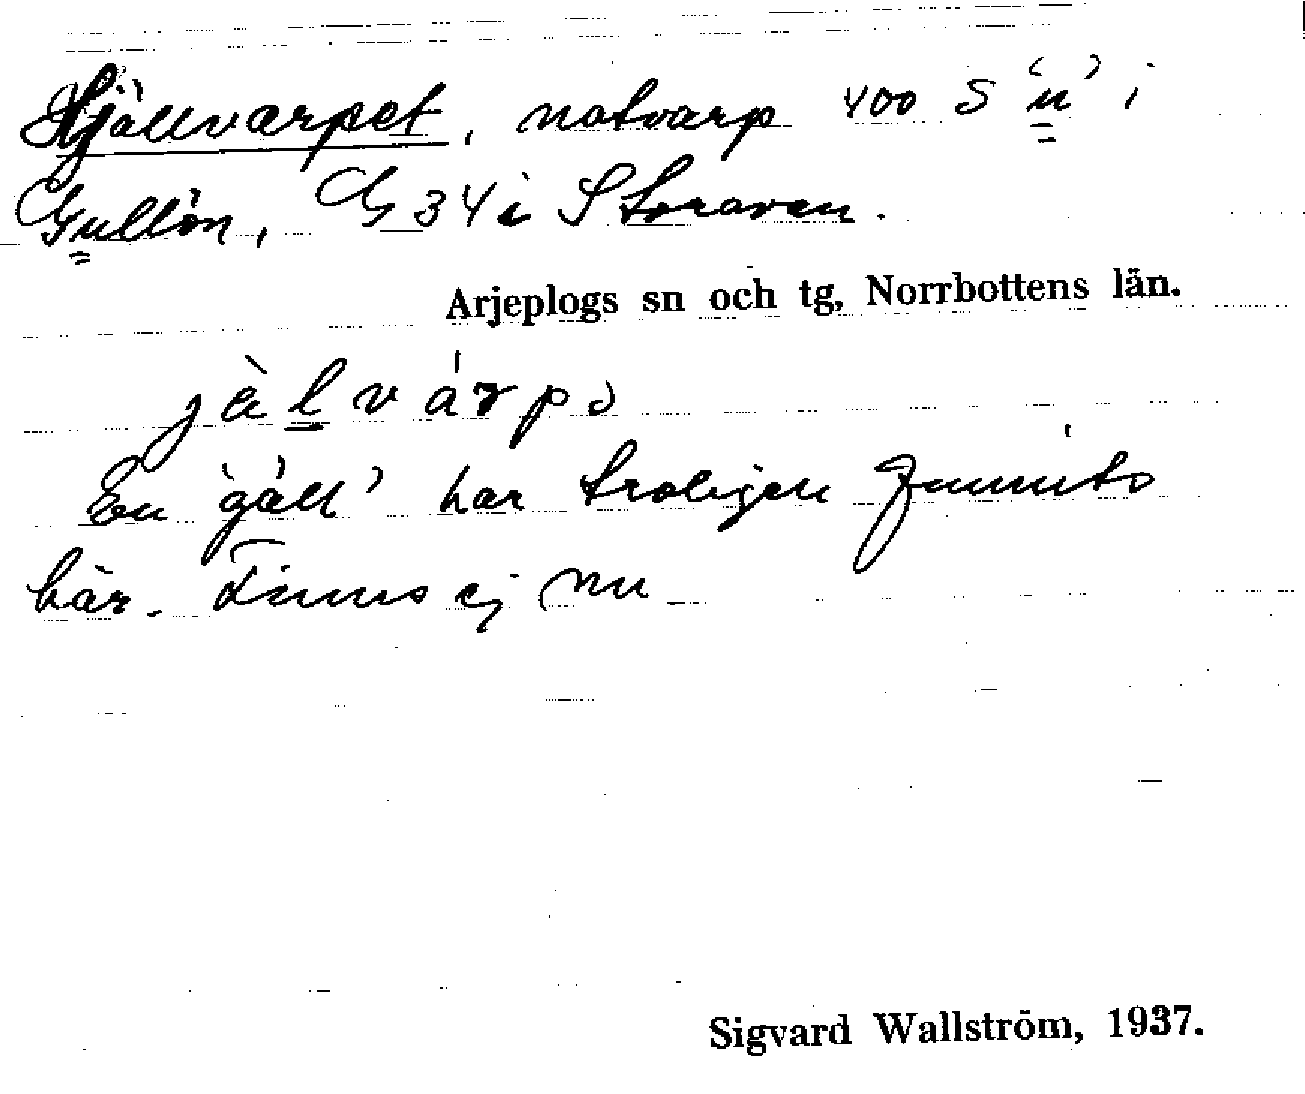 Hjällvarpet, notvarp 400 S 'u' i
Gullön, G 34 i Storaven.
Arjeplogs sn och tg, Norrbottens län.
jàlvárpə
En 'gäll' har troligen funnits
här. Finns ej nu
Sigvard Wallström, 1937.